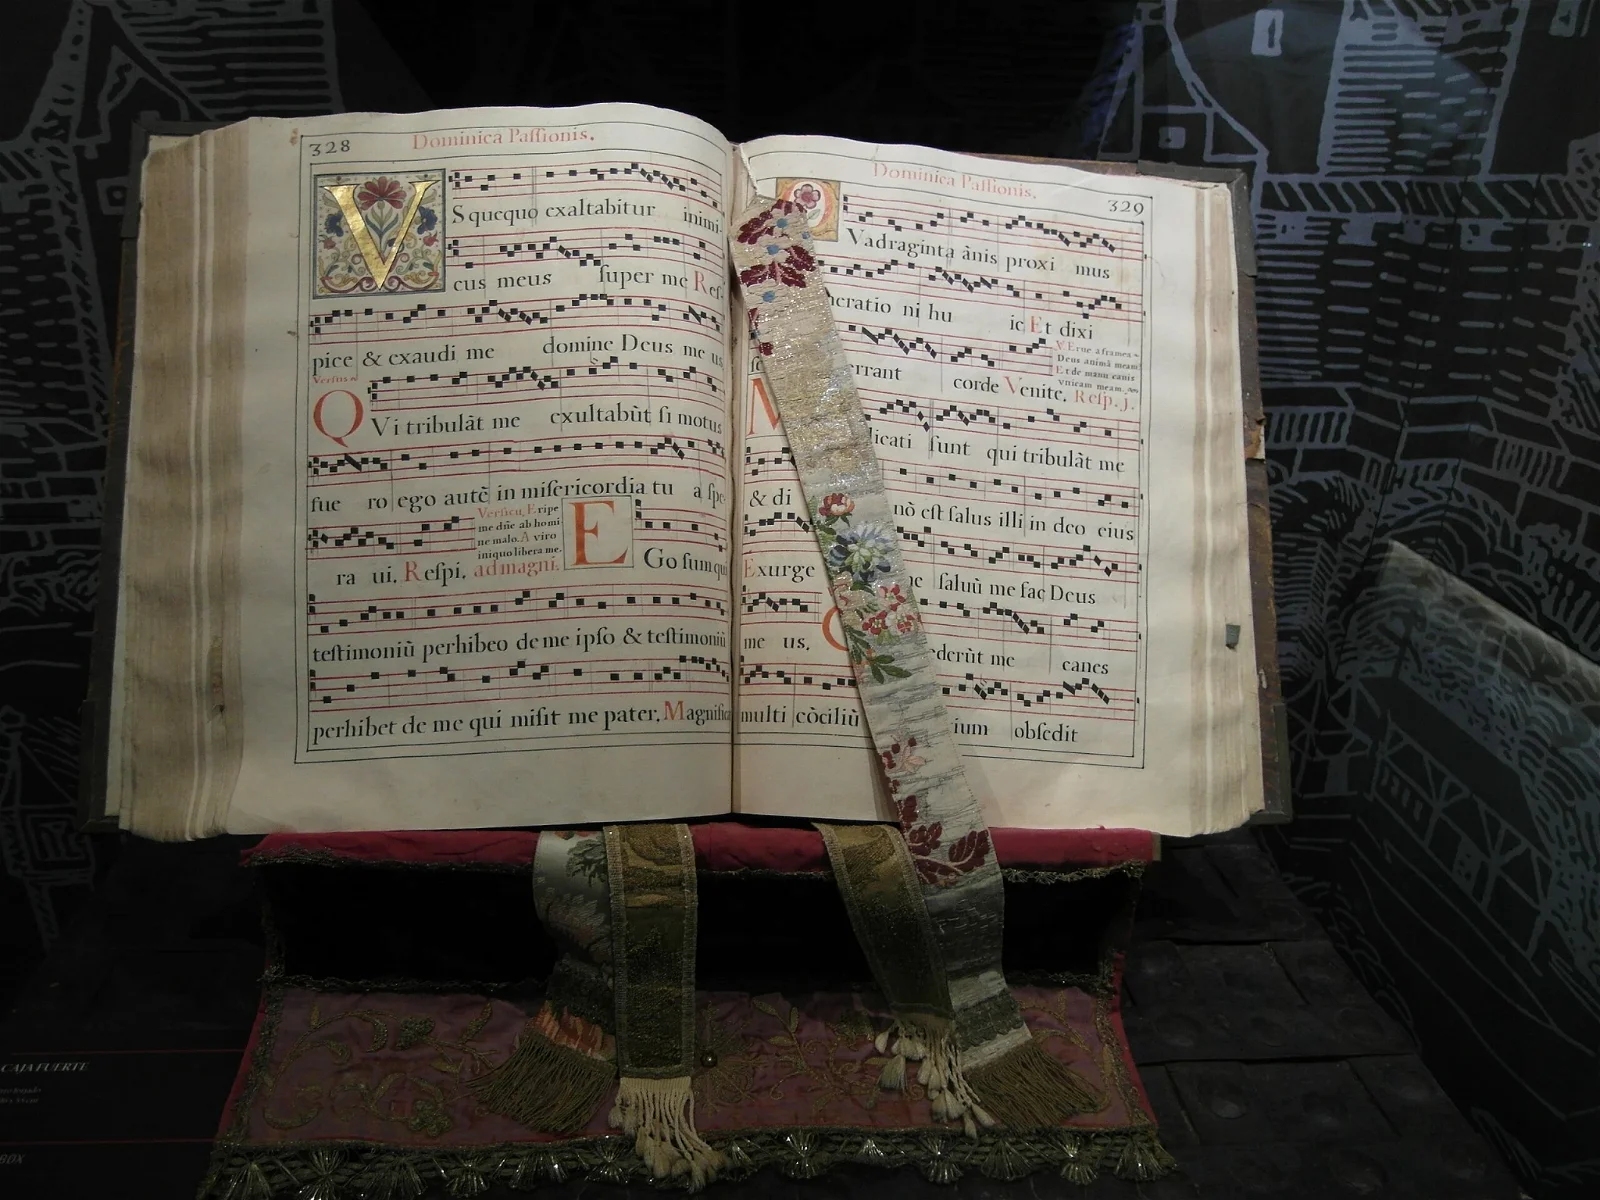 328
Dominica Passionis.
V
Squequo exaltabitur inimi-
cus meus super me Res-
pice & exaudi me domine Deus me us,
Versus
QVi tribulāt me exultabūt si motus
fue ro ego autē in misericordia tu a spe
ra ui, Respi,
Versicu, Eripe
me dñe ab homi
ne malo. A viro
iniquo libera me.
ad magni.
EGo sum qui
testimoniū perhibeo de me ipso & testimoniū
perhibet de me qui misit me pater, Magnifica
Dominica Passionis.
329
Vadraginta ānis proxi mus
neratio ni hu ic Et dixi
rrant corde Venite, Resp. J.
V. Erue a framea
Deus animā meam
Et de manu canis
vnicam meam.
M licati sunt qui tribulāt me
& di nō est salus illi in deo eius
Exurge saluū me fac Deus
me us, ederūt me canes
multi cōciliū ium obsedit
CAJA FUERTE
BOX